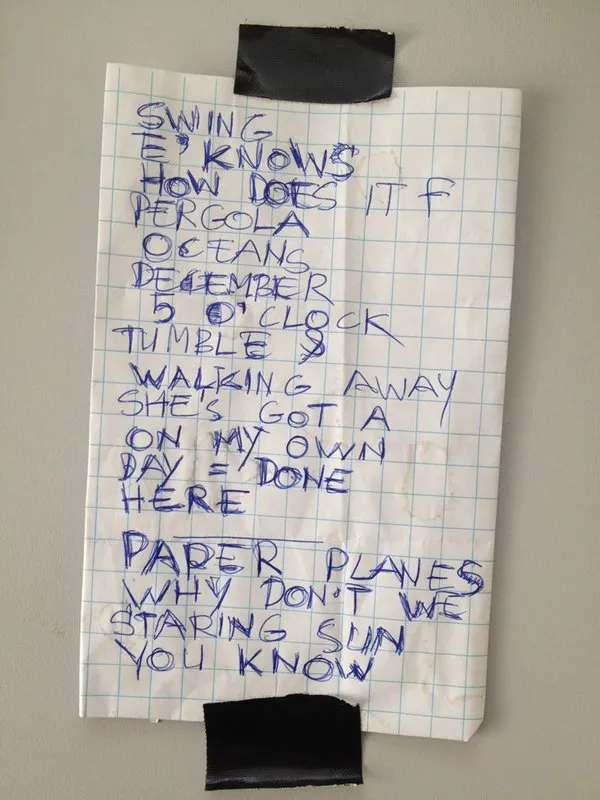 SWING
E' KNOWS
HOW DOES IT F
PERGOLA
OCEANS
DECEMBER
5 O'CLOCK
TUMBLE &
WALKING AWAY
SHE'S GOT A
ON MY OWN
DAY = DONE
HERE
PAPER PLANES
WHY DON'T WE
STARING SUN
YOU KNOW